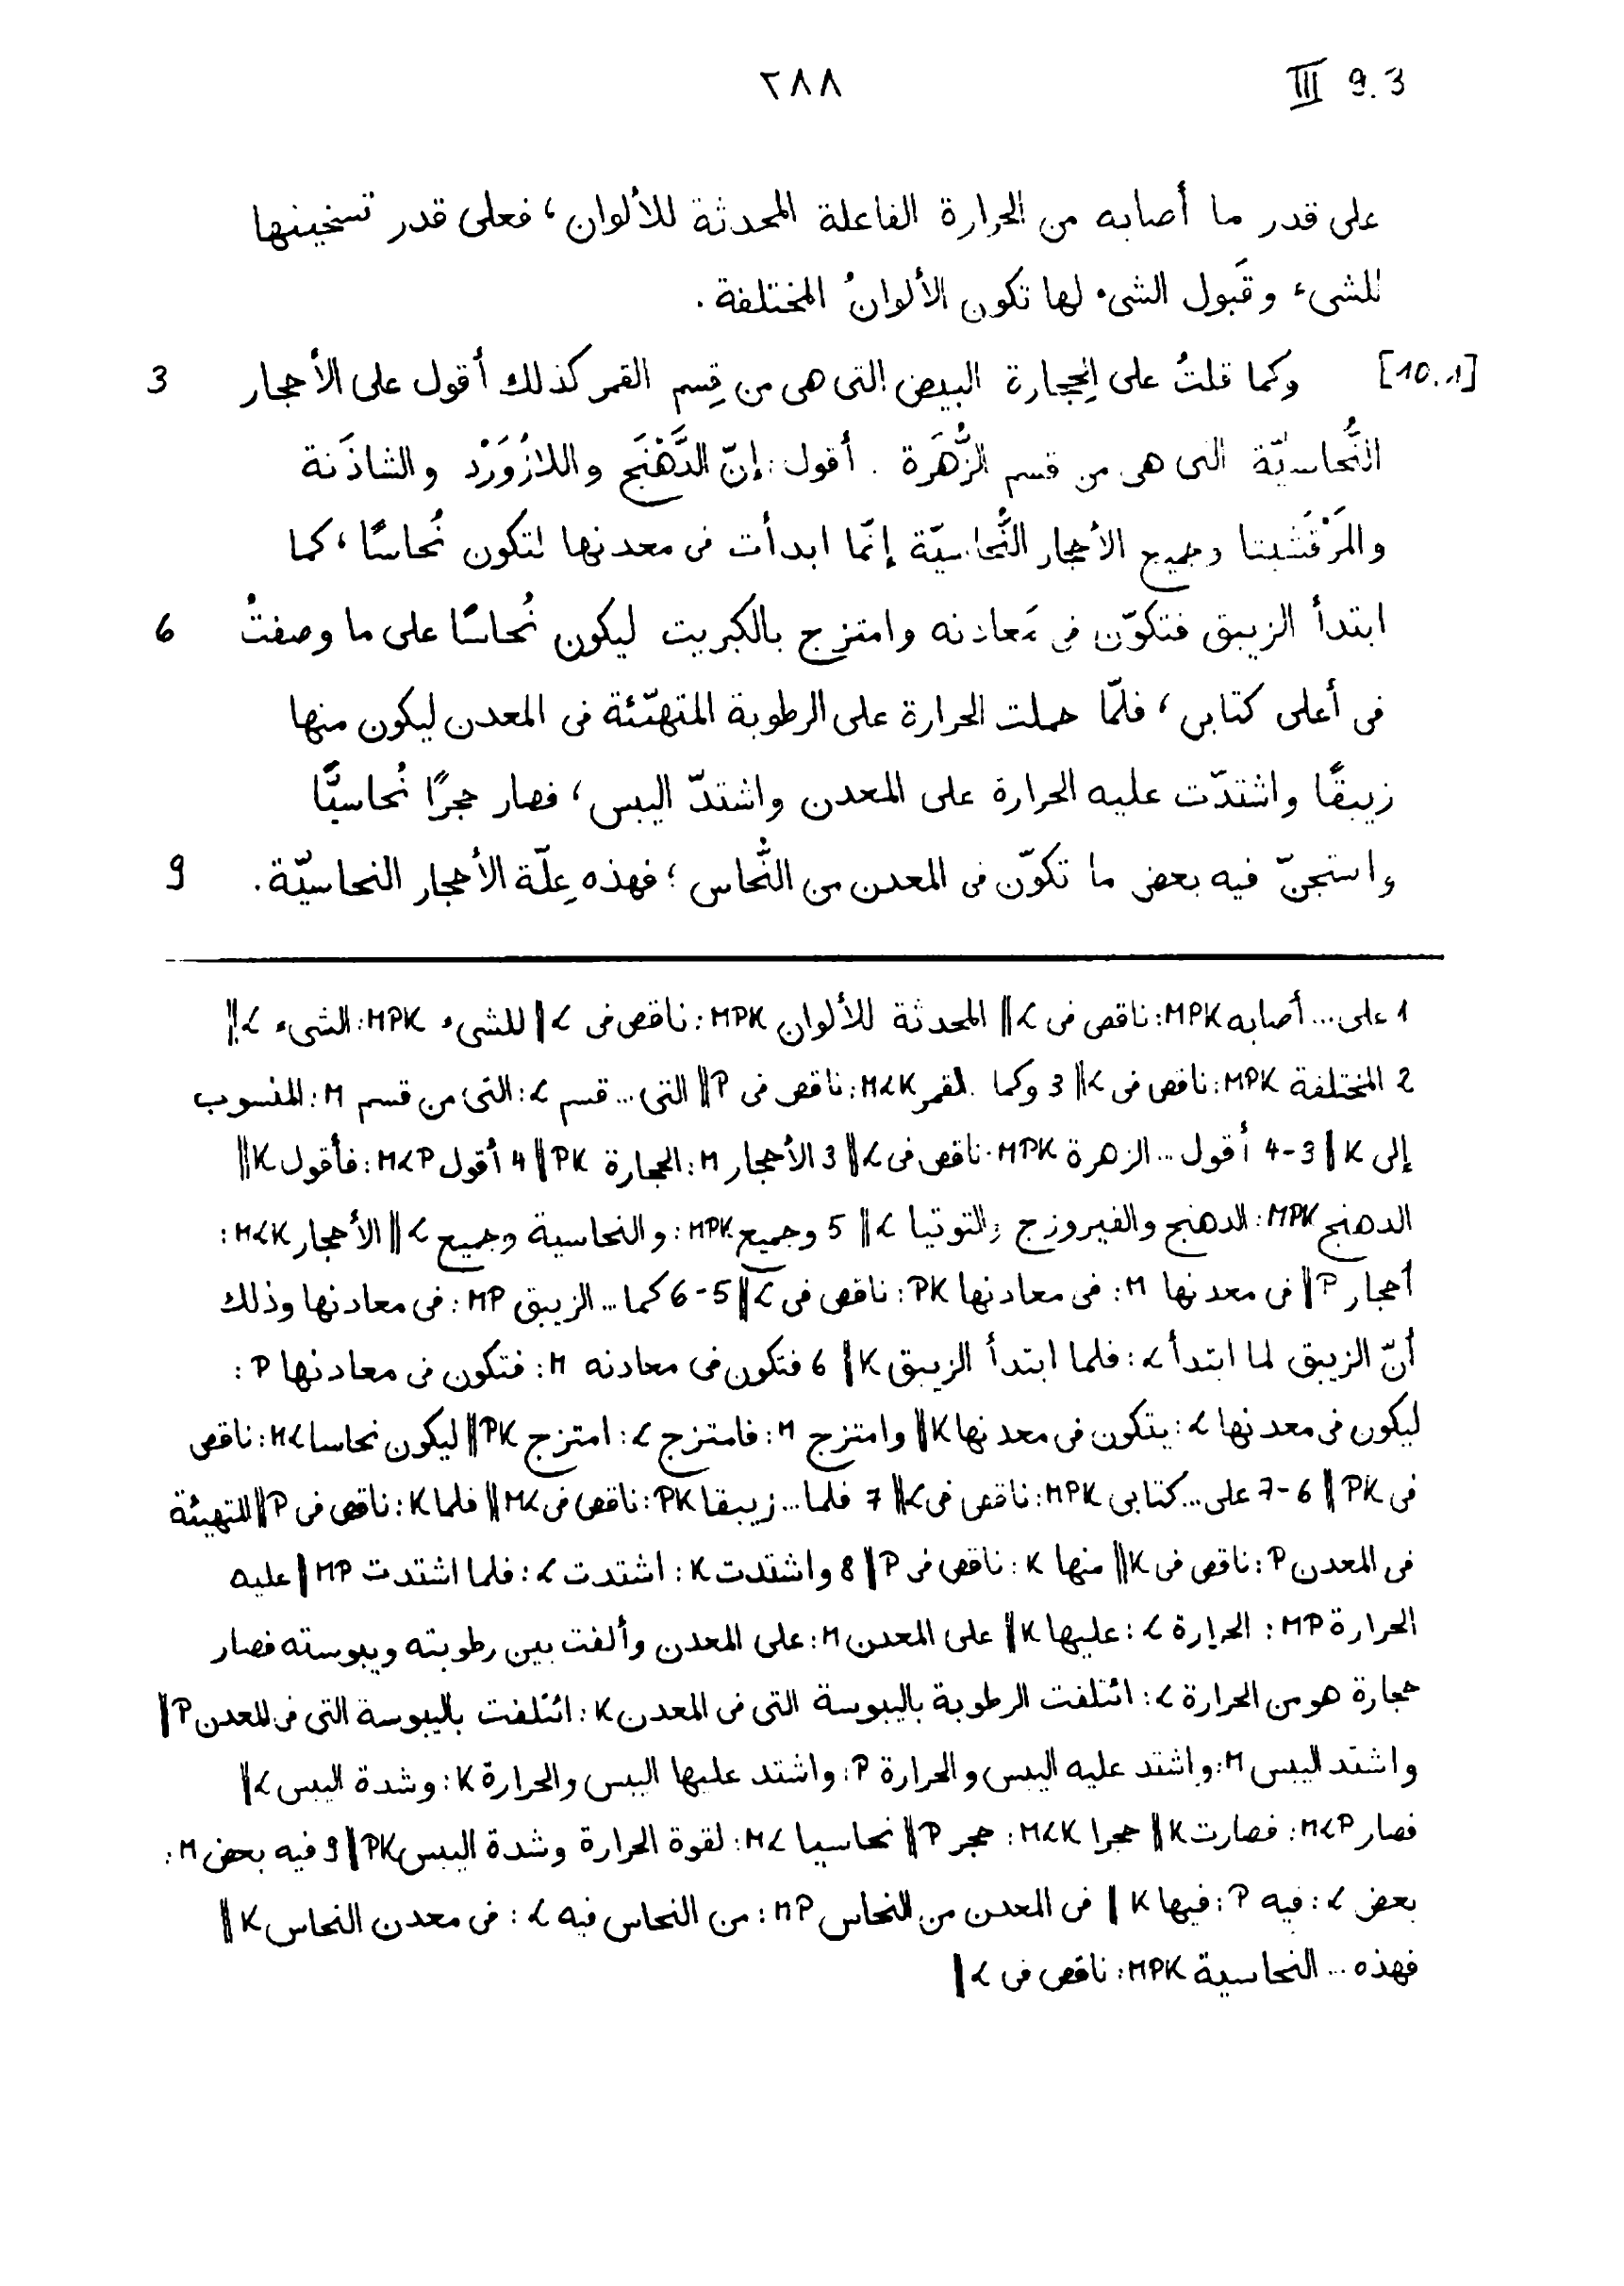 ٢٨٨ III 9.3
على قدر ما أصابه من الحرارة الفاعلة المحدثة للألوان، فعلى قدر تسخينها
للشىء وقَبول الشىء لها تكون الألوانُ المختلفة.
[10.1] وكما قلتُ على الحِجارة البيض التى هى من قِسم القمر كذلك أقول على الأحجار 3
النُّحاسيّة التى هى من قسم الزُّهَرة. أقول: إنّ الدَّهْنَج واللازُوَرْد والشاذَنة
والمَرْقَشيتا وجميع الأحجار النُّحاسيّة إنّما ابدأت فى معدنها لتكون نُحاسًا، كما
ابتدأ الزيبق فتكوّن فى مَعادنه وامتزج بالكبريت ليكون نُحاسًا على ما وصفتُ 6
فى أعلى كتابى، فلمّا حملت الحرارة على الرطوبة المتهيّئة فى المعدن ليكون منها
زيبقًا واشتدّت عليه الحرارة على المعدن واشتدّ اليبس، فصار حجرًا نُحاسيًّا
واستجنّ فيه بعض ما تكوّن فى المعدن من النُّحاس؛ فهذه عِلّة الأحجار النحاسيّة. 9
1 على... أصابه MPK: ناقص فى L ‖ المحدثة للألوان MPK: ناقص فى L ‖ للشىء MPK: الشىء L ‖
2 المختلفة MPK: ناقص فى L ‖ 3 وكما .. القمر MLK: ناقص فى P ‖ التى... قسم L: التى من قسم M: المنسوب
إلى K ‖ 3-4 أقول... الزهرة MPK: ناقص فى L ‖ 3 الأحجار M: الحجارة PK ‖ 4 أقول MLP: فأقول K ‖
الدهنج MPK: الدهنج والفيروزج والتوتيا L ‖ 5 وجميع MPK: والنحاسية وجميع L ‖ الأحجار MLK:
أحجار P ‖ فى معدنها M: فى معادنها PK: ناقص فى L ‖ 5-6 كما... الزيبق MP: فى معادنها وذلك
أنّ الزيبق لما ابتدأ L: فلما ابتدأ الزيبق K ‖ 6 فتكون فى معادنه M: فتكون فى معادنها P:
ليكون فى معدنها L: يتكون فى معدنها K ‖ وامتزج M: فامتزج L: امتزج PK ‖ ليكون نحاسا ML: ناقص
فى PK ‖ 6-7 على... كتابى MPK: ناقص فى L ‖ 7 فلما... زيبقا PK: ناقص فى ML ‖ فلما K: ناقص فى P ‖ المتهيئة
فى المعدن P: ناقص فى K ‖ منها K: ناقص فى P ‖ 8 واشتدت K: اشتدت L: فلما اشتدت MP ‖ عليه
الحرارة MP: الحرارة L: عليها K ‖ على المعدن M: على المعدن وألفت بين رطوبته ويبوسته فصار
حجارة هو من الحرارة L: ائتلفت الرطوبة باليبوسة التى فى المعدن K: ائتلفت باليبوسة التى فى المعدن P ‖
واشتد اليبس M: واشتد عليه اليبس والحرارة P: واشتد عليها اليبس والحرارة K: وشدة اليبس L ‖
فصار MLP: فصارت K ‖ حجرا MLK: حجر P ‖ نحاسيا ML: لقوة الحرارة وشدة اليبس PK ‖ 9 فيه بعض M:
بعض L: فيه P: فيها K ‖ فى المعدن من النحاس MP: من النحاس فيه L: فى معدن النحاس K ‖
فهذه... النحاسية MPK: ناقص فى L ‖